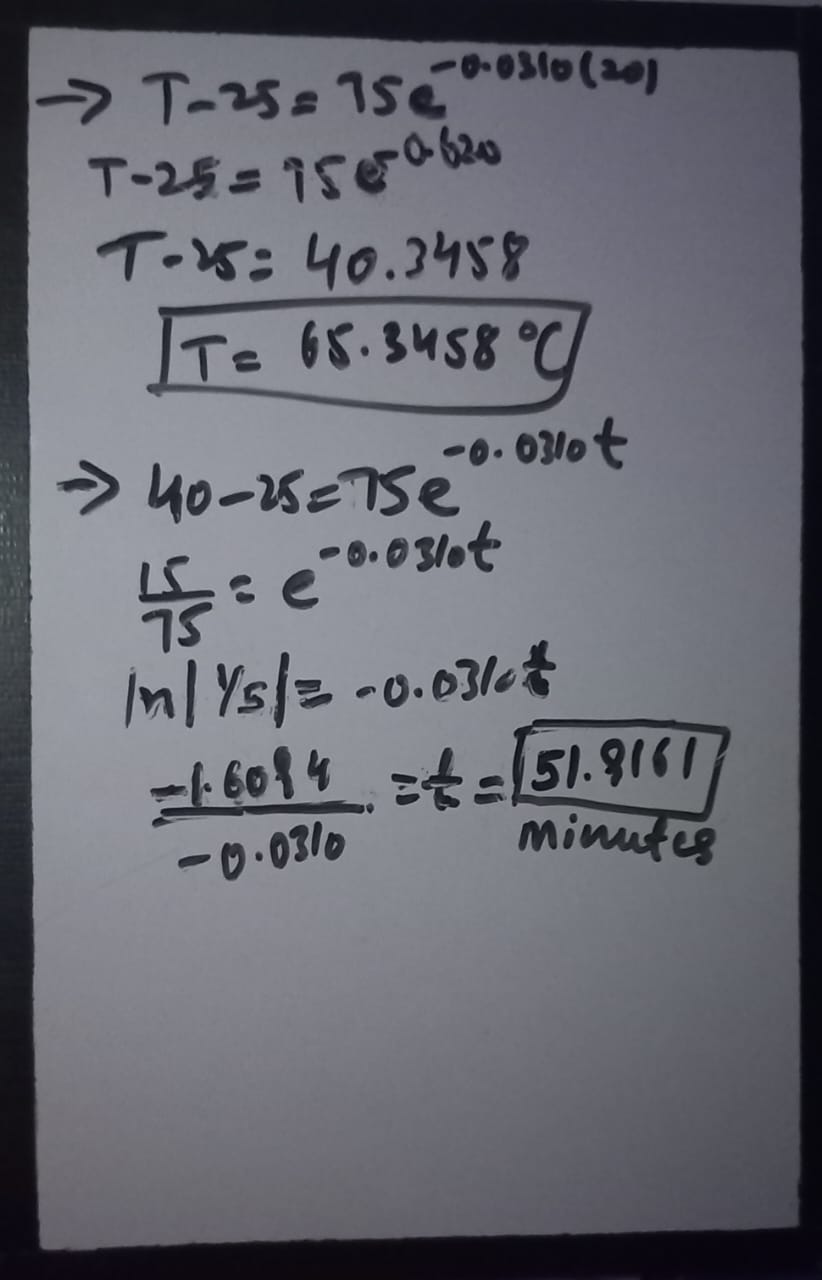 → T-25 = 75e^-0.0310(20)
T-25 = 75e^-0.620
T-25 = 40.3458
T = 65.3458 °C
→ 40-25 = 75e^-0.0310t
15/75 = e^-0.0310t
ln|1/5| = -0.0310t
-1.6094/-0.0310 = t = 51.9161
minutes